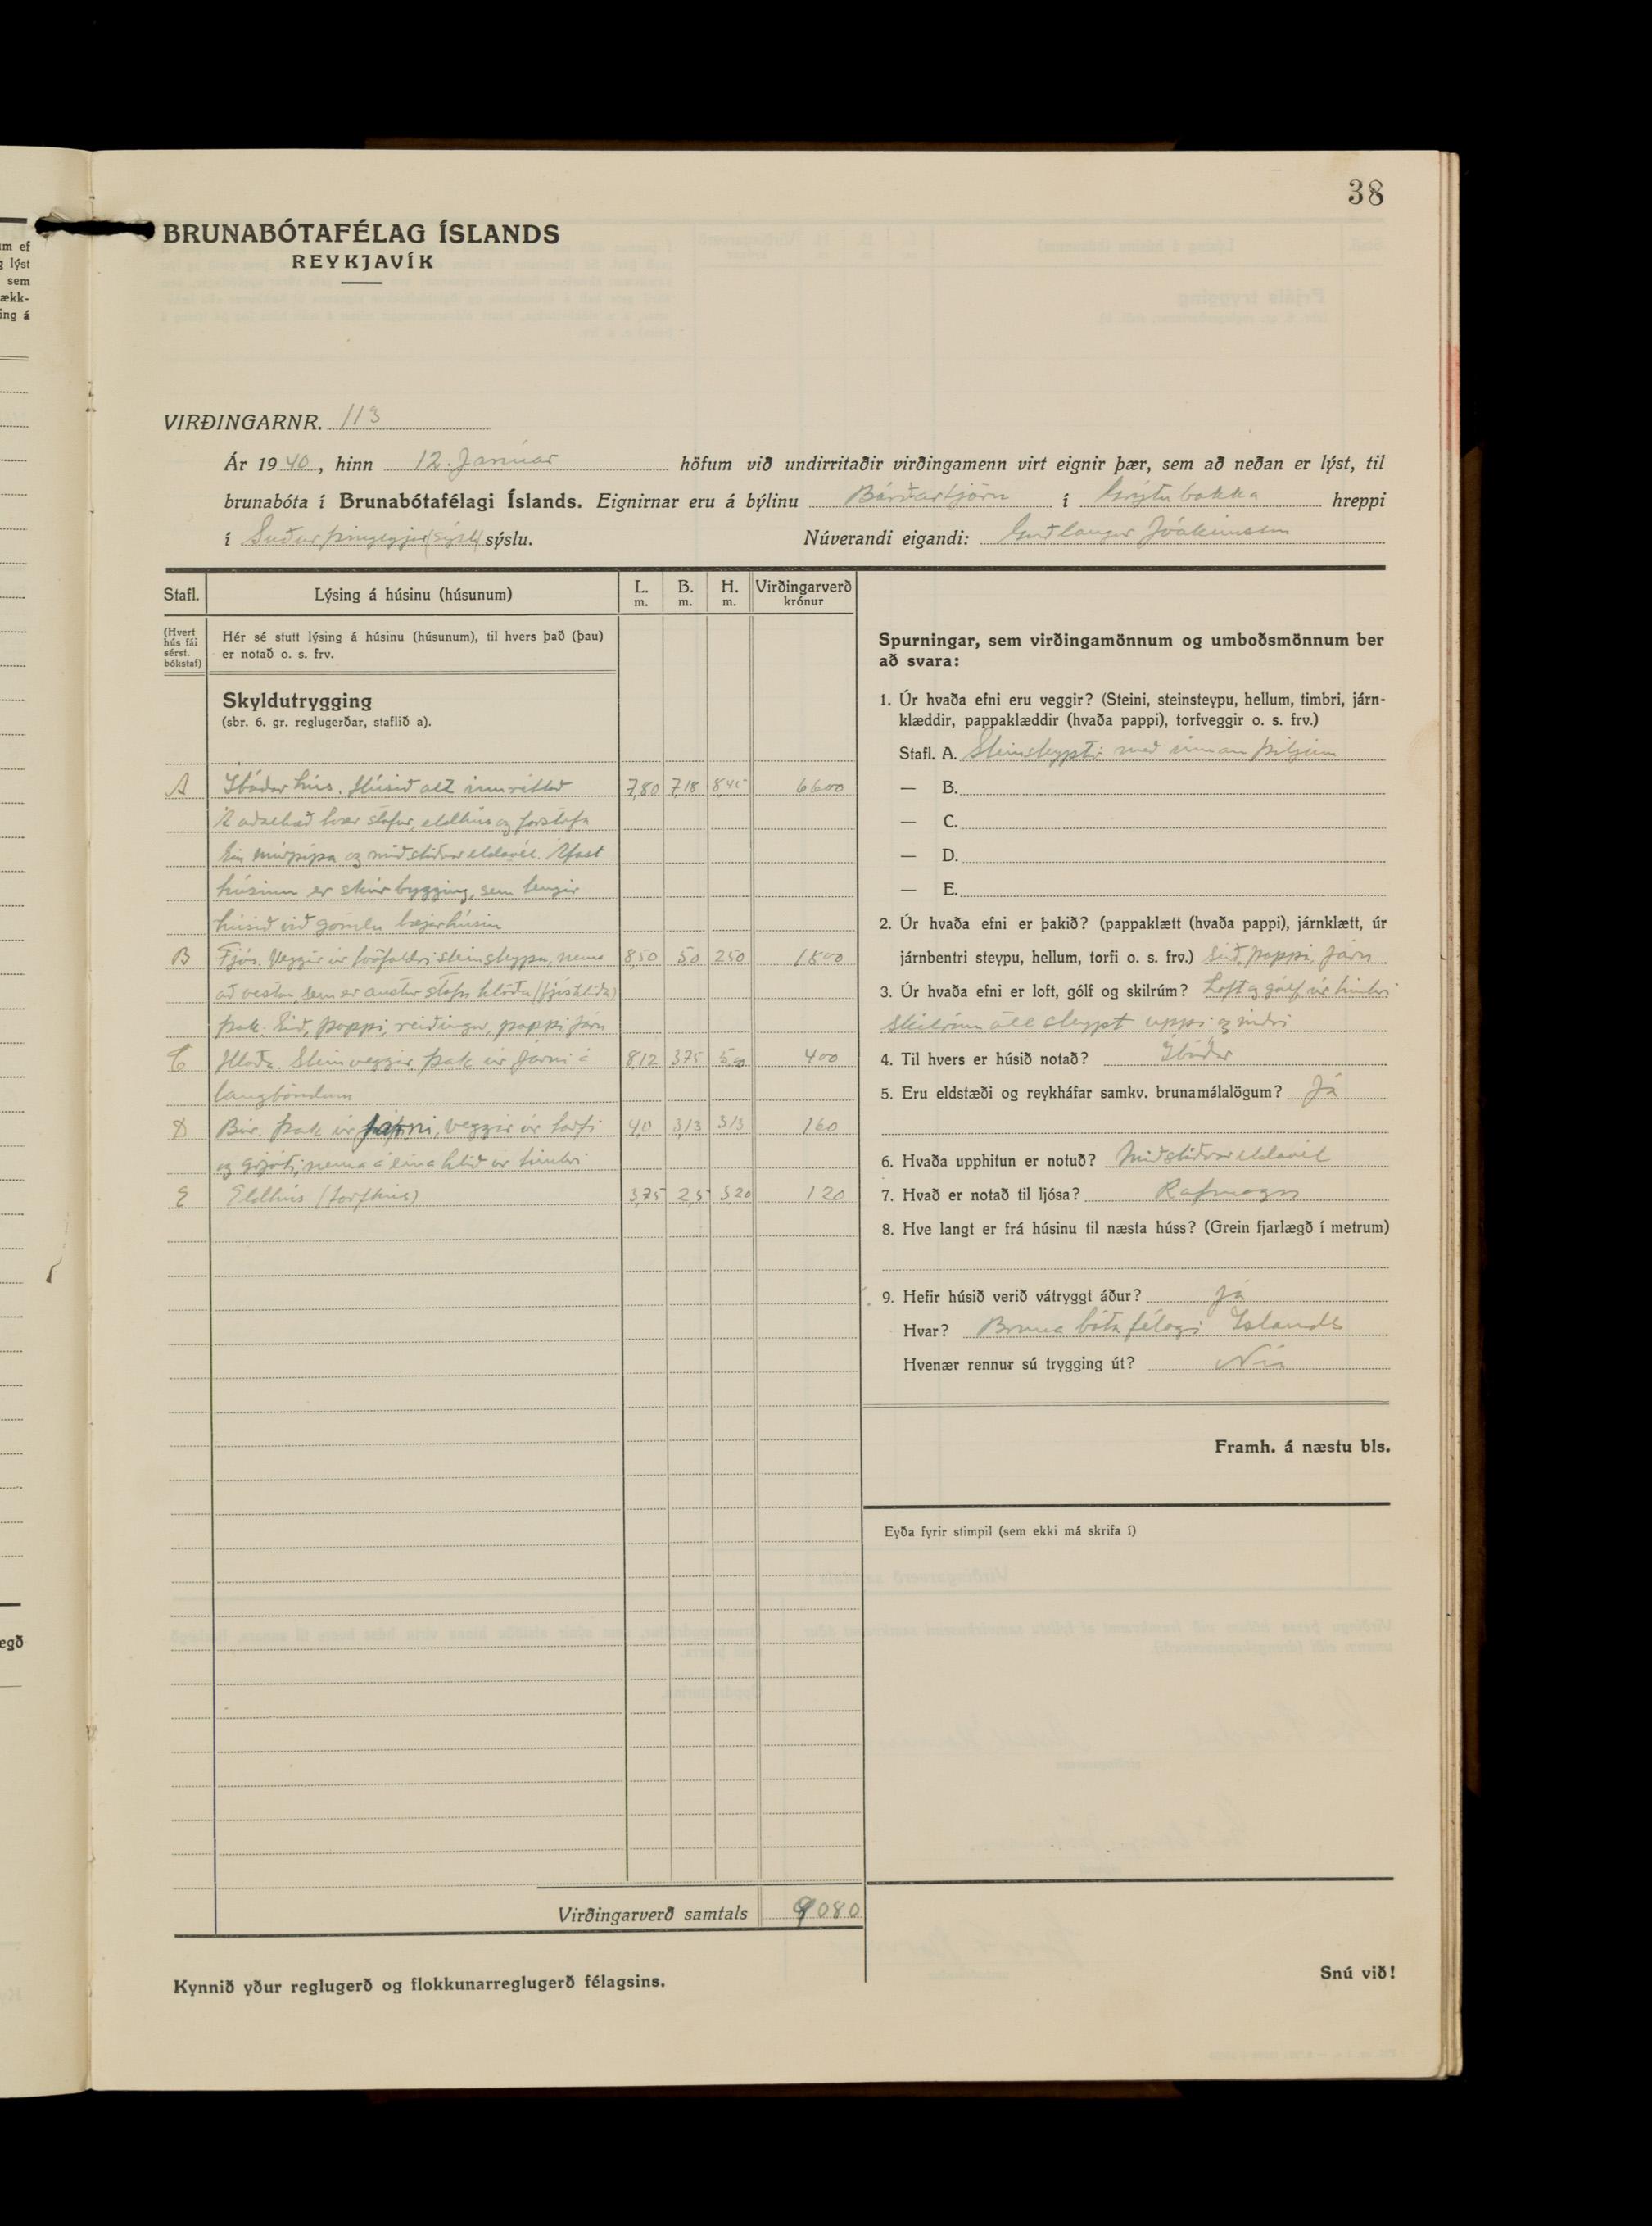 38
BRUNABÓTAFÉLAG ÍSLANDS
REYKJAVÍK
VIRÐINGARNR. 113
Ár 1940, hinn 12. Janúar höfum við undirritaðir virðingamenn virt eignir þær, sem að neðan er lýst, til
brunabóta í Brunabótafélagi Íslands. Eignirnar eru á býlinu Bárðartjörn í Grýtubakka hreppi
í Suðurþingeyjar(sýsl) sýslu. Núverandi eigandi: Guðlaugur Jóakimsson
Stafl. Lýsing á húsinu (húsunum) L. m. B. m. H. m. Virðingarverð krónur
(Hvert hús fái sérst. bókstaf)
Hér sé stutt lýsing á húsinu (húsunum), til hvers það (þau)
er notað o. s. frv.
Skyldutrygging
(sbr. 6. gr. reglugerðar, staflið a).
A Íbúðarhús. Húsið alt innréttað 7,80 7,18 8,45 6600
Á aðalhæð tvær stofur, eldhús og forstofa
Ein múrpípa og miðstöðvareldavél. Áfast
húsinu er skúrbygging, sem tengir
húsið við gömlu bæjarhúsin
B Fjós. Veggir úr tvöfaldri steinsteypu, nema 8,50 5,0 2,50 1800
að vestan, sem er austur stafn hlöðu (fjóshlöðu)
Þak. Súð, pappi, reiðingur, pappi, járn
C Hlaða. Steinveggir. Þak úr járni á 8,12 3,75 5,00 400
langböndum
D Búr. Þak úr járni, veggir úr torfi 4,0 3,13 3,13 160
og grjóti, nema á eina hlið úr timbri
E Eldhús (torfhús) 3,75 2,5 3,20 120
Virðingarverð samtals 9080
Kynnið yður reglugerð og flokkunarreglugerð félagsins.
Spurningar, sem virðingamönnum og umboðsmönnum ber
að svara:
1. Úr hvaða efni eru veggir? (Steini, steinsteypu, hellum, timbri, járn-
klæddir, pappaklæddir (hvaða pappi), torfveggir o. s. frv.)
Stafl. A. Steinsteyptir með innan þiljum
— B.
— C.
— D.
— E.
2. Úr hvaða efni er þakið? (pappaklætt (hvaða pappi), járnklætt, úr
járnbentri steypu, hellum, torfi o. s. frv.) Súð, pappi, járn
3. Úr hvaða efni er loft, gólf og skilrúm? Loft og gólf úr timbri
skilrúm öll steypt uppi og niðri
4. Til hvers er húsið notað? Íbúðar
5. Eru eldstæði og reykháfar samkv. brunamálalögum? Já
6. Hvaða upphitun er notuð? Miðstöðvareldavél
7. Hvað er notað til ljósa? Rafmagn
8. Hve langt er frá húsinu til næsta húss? (Grein fjarlægð í metrum)
9. Hefir húsið verið vátryggt áður? Já
Hvar? Brunabótafélagi Íslands
Hvenær rennur sú trygging út? Nú
Framh. á næstu bls.
Eyða fyrir stimpil (sem ekki má skrifa í)
Snú við!